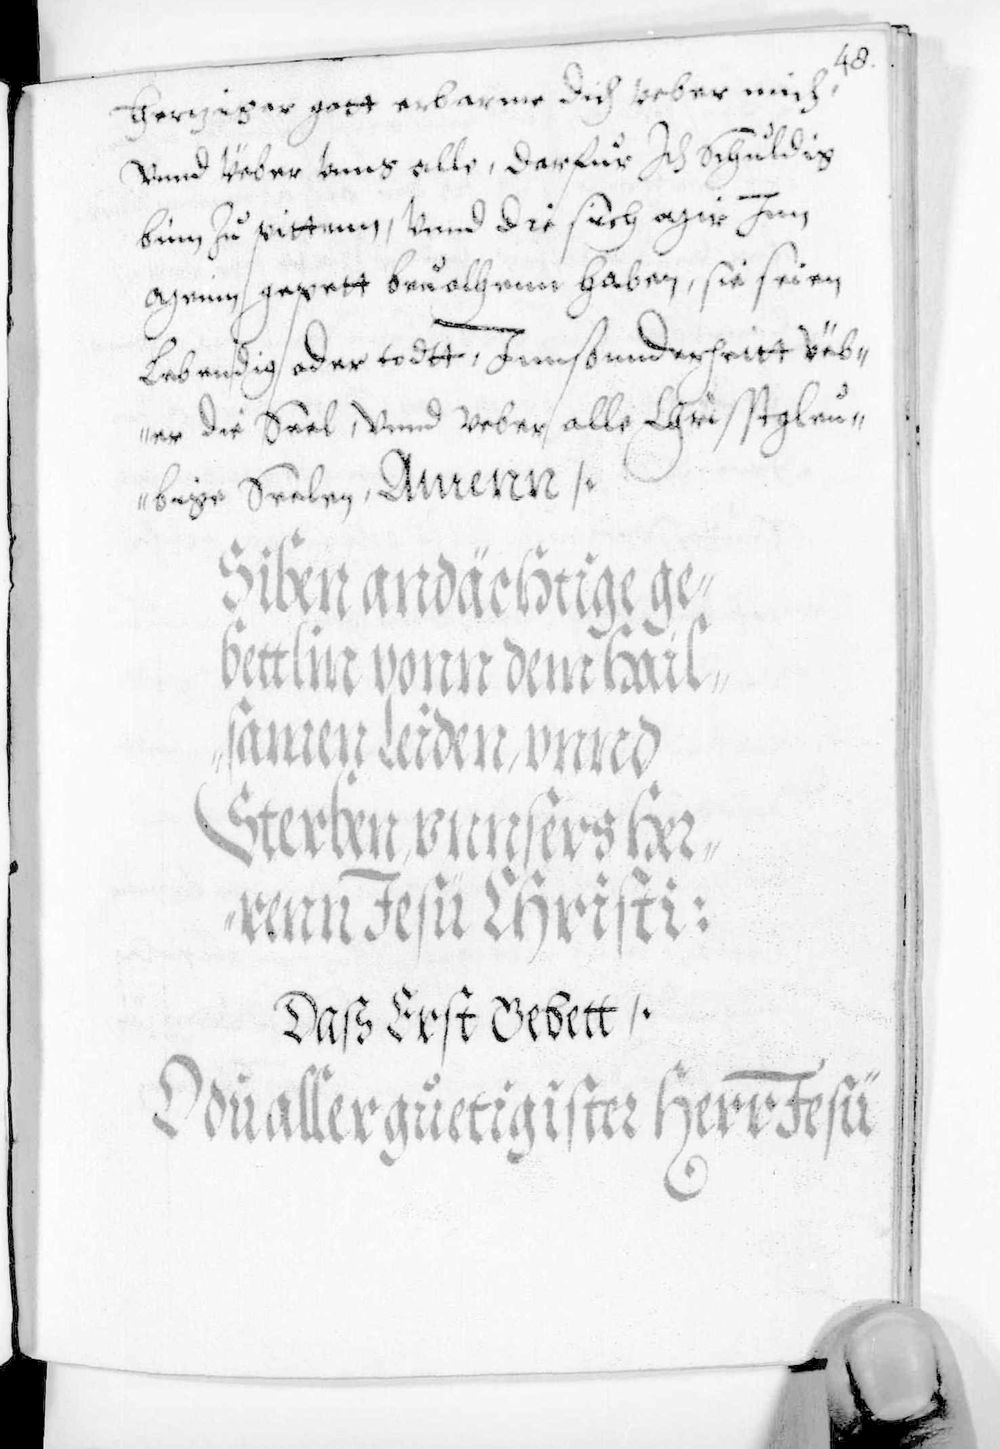 48.
hertziger gott erbarme dich veber mich,
vnnd veber vnns alle, darfür Ich schuldig
binn zu pittenn, vnnd die sich mir Inn
mein gepett beuolhenn haben, sie seien
Lebendig oder todtt, Innsonnderheitt veb-
-er die Seel, vnnd veber alle Christgleu-
-bige Seelen, Amenn /.
Siben andächtige ge-
bettlin vonn dem hail-
-samen leiden, vnnd
Sterben, vnnsers her-
-renn Jesü Christi:
Daß Erst Gebett /.
O dü allerguetigister Herr Jesü